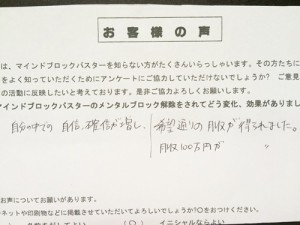 お客様の声
は、マインドブロックバスターを知らない方がたくさんいらっしゃいます。その方たちに
をよく知っていただくためにアンケートにご協力していただけないでしょうか? ご意見
の活動に反映したいと考えております。是非ご協力よろしくお願いします。
マインドブロックバスターのメンタルブロック解除をされてどう変化、効果がありまし
自分の中での自信、確信が増し、希望通りの月収が得られました。
月収100万円が 〃
お声についてお願いがあります。
ネットや印刷物などに掲載させていただいてよろしいでしょうか?○をおつけください。
イニシャルならよい